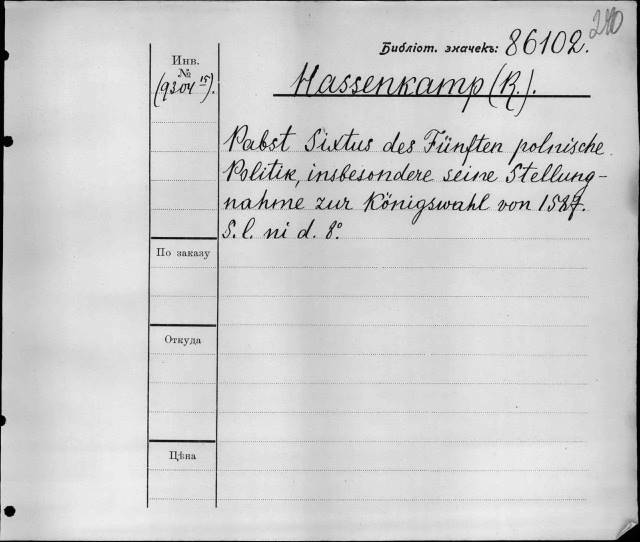 240
Библіот. значекъ: 86102.
Инв.
№
(9304 15).
Hassenkamp (R.).
Pabst Sixtus des Fünften polnische
Politik, insbesondere seine Stellung-
nahme zur Königswahl von 1587.
S. l. ni d. 8°.
По заказу
Откуда
Цѣна